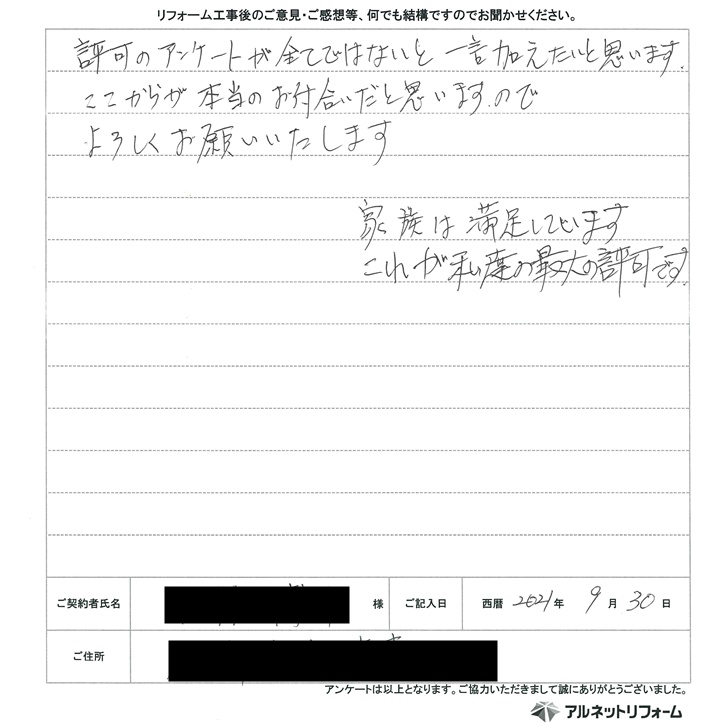 リフォーム工事後のご意見・ご感想等、何でも結構ですのでお聞かせください。
許可のアンケートが全てではないと 一言加えたいと思います.
ここからが本当のお付合いだと思います.ので
よろしくお願いいたします
家族は満足しています
これが私達の最大の許可です.
ご契約者氏名
様
ご記入日
西暦 2021年 9月 30日
ご住所
アンケートは以上となります。ご協力いただきまして誠にありがとうございました。
アルネットリフォーム